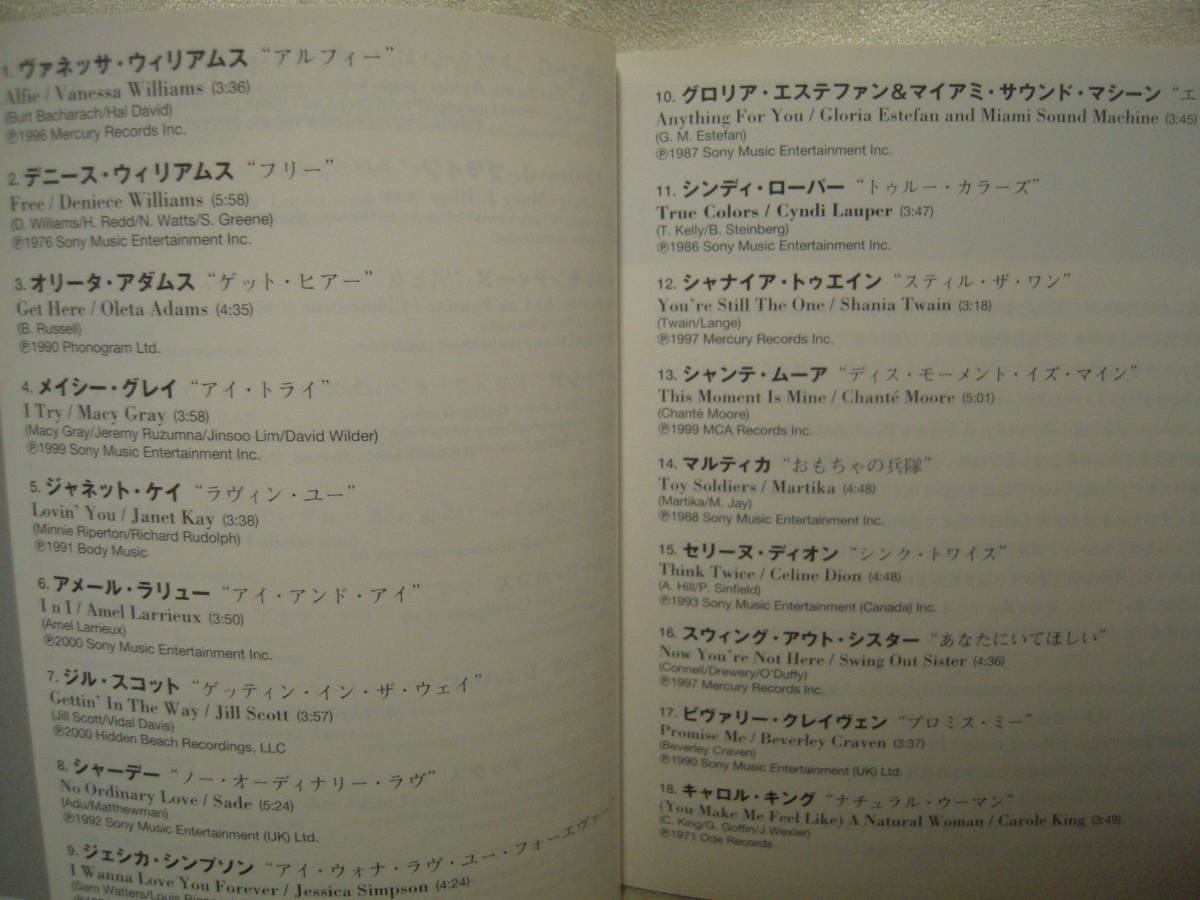 1. ヴァネッサ・ウィリアムス “アルフィー”
Alfie / Vanessa Williams (3:36)
(Burt Bacharach/Hal David)
℗1996 Mercury Records Inc.
2. デニース・ウィリアムス “フリー”
Free / Deniece Williams (5:58)
(D. Williams/H. Redd/N. Watts/S. Greene)
℗1976 Sony Music Entertainment Inc.
3. オリータ・アダムス “ゲット・ヒアー”
Get Here / Oleta Adams (4:35)
(B. Russell)
℗1990 Phonogram Ltd.
4. メイシー・グレイ “アイ・トライ”
I Try / Macy Gray (3:58)
(Macy Gray/Jeremy Ruzumna/Jinsoo Lim/David Wilder)
℗1999 Sony Music Entertainment Inc.
5. ジャネット・ケイ “ラヴィン・ユー”
Lovin' You / Janet Kay (3:38)
(Minnie Riperton/Richard Rudolph)
℗1991 Body Music
6. アメール・ラリュー “アイ・アンド・アイ”
I n I / Amel Larrieux (3:50)
(Amel Larrieux)
℗2000 Sony Music Entertainment Inc.
7. ジル・スコット “ゲッティン・イン・ザ・ウェイ”
Gettin' In The Way / Jill Scott (3:57)
(Jill Scott/Vidal Davis)
℗2000 Hidden Beach Recordings, LLC
8. シャーデー “ノー・オーディナリー・ラヴ”
No Ordinary Love / Sade (5:24)
(Adu/Matthewman)
℗1992 Sony Music Entertainment (UK) Ltd.
9. ジェシカ・シンプソン “アイ・ウォナ・ラヴ・ユー・フォーエヴァー”
I Wanna Love You Forever / Jessica Simpson (4:24)
(Sam Watters/Louis
10. グロリア・エステファン&マイアミ・サウンド・マシーン “エ
Anything For You / Gloria Estefan and Miami Sound Machine (3:45)
(G. M. Estefan)
℗1987 Sony Music Entertainment Inc.
11. シンディ・ローパー “トゥルー・カラーズ”
True Colors / Cyndi Lauper (3:47)
(T. Kelly/B. Steinberg)
℗1986 Sony Music Entertainment Inc.
12. シャナイア・トゥエイン “スティル・ザ・ワン”
You're Still The One / Shania Twain (3:18)
(Twain/Lange)
℗1997 Mercury Records Inc.
13. シャンテ・ムーア “ディス・モーメント・イズ・マイン”
This Moment Is Mine / Chanté Moore (5:01)
(Chanté Moore)
℗1999 MCA Records Inc.
14. マルティカ “おもちゃの兵隊”
Toy Soldiers / Martika (4:48)
(Martika/M. Jay)
℗1988 Sony Music Entertainment Inc.
15. セリーヌ・ディオン “シンク・トワイス”
Think Twice / Celine Dion (4:48)
(A. Hill/P. Sinfield)
℗1993 Sony Music Entertainment (Canada) Inc.
16. スウィング・アウト・シスター “あなたにいてほしい”
Now You're Not Here / Swing Out Sister (4:36)
(Connell/Drewery/O'Duffy)
℗1997 Mercury Records Inc.
17. ビヴァリー・クレイヴェン “プロミス・ミー”
Promise Me / Beverley Craven (3:37)
(Beverley Craven)
℗1990 Sony Music Entertainment (UK) Ltd.
18. キャロル・キング “ナチュラル・ウーマン”
(You Make Me Feel Like) A Natural Woman / Carole King (3:49)
(C. King/G. Goffin/J. Wexler)
℗1971 Ode Records